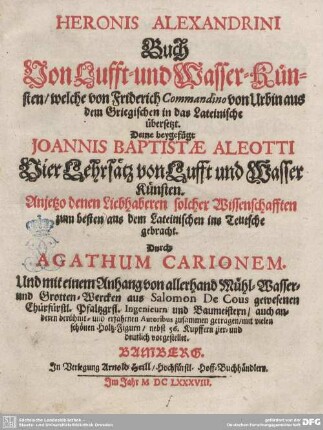 HERONIS ALEXANDRINI
Buch
Von Lufft- und Wasser-Kün-
sten/ welche von Friderich Commandino von Urbin aus
dem Griegischen in das Lateinische
übersetzt.
Deme beygefügt
JOANNIS BAPTISTÆ ALEOTTI
Vier Lehrsätz von Lufft und Wasser
Künsten.
Anjetzo denen Liebhaberen solcher Wissenschafften
zum besten/ aus dem Lateinischen ins Teutsche
gebracht.
Durch
AGATHUM CARIONEM.
Und mit einem Anhang von allerhand Mühl-Wasser-
und Grotten-Wercken aus Salomon De Cous gewesenen
Churfürstl. Pfaltzgrfl. Ingenieurn und Baumeistern/ auch an-
deren berühmt- und erfahrnen Autoribus zusammen getragen/ mit vielen
schönen Holtz-Figurn/ nebst 36. Kupffern zier- und
deutlich vorgestellet.
BAMBERG.
In Verlegung Arnold Heill/ Hochfürstl. Hoff-Buchhändlern.
Im Jahr M DC LXXXVIII.
DFG